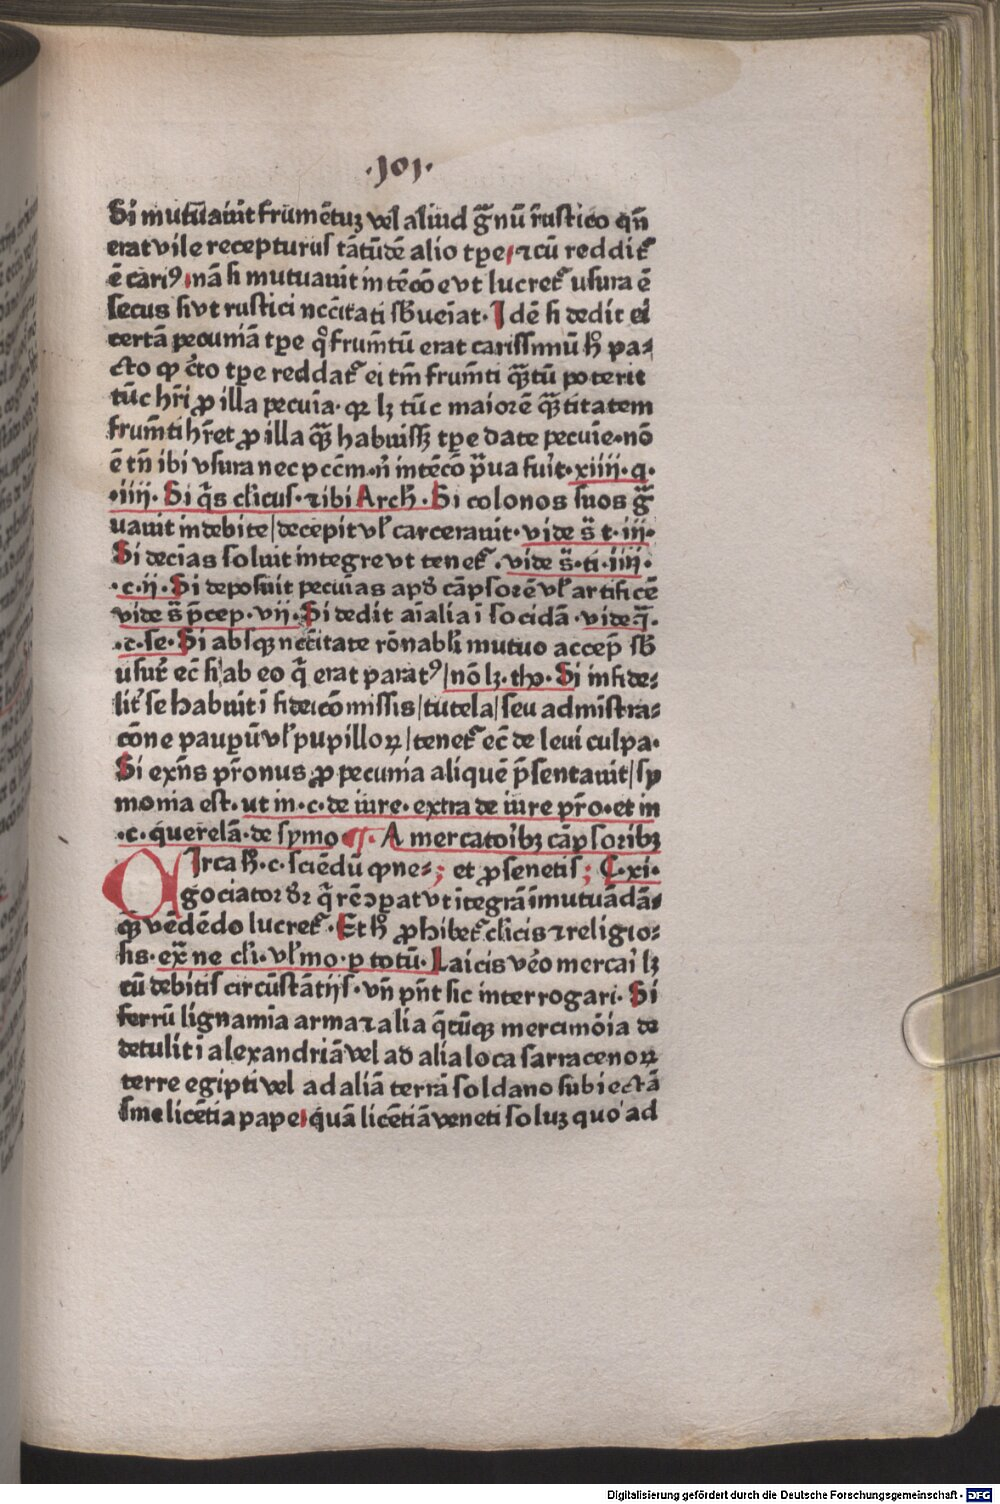 ·101·
Si mutuauit frumētuʒ vel aliud g̃nū rustico qñ
erat vile recepturus tātūdē alio tꝑe / ⁊ cū reddit᷑
ē cariꝰ nā si mutuauit in tēcōe vt lucret᷑ usura ē
secus si vt rustici nc̄citati sb̄ueiat· Idē si dedit ei
certā pecuniā tꝑe q̊ frum̄tū erat carissimū h̄ pa⸗
cto ꝙ c̄to tꝑe reddat᷑ ei tm̄ frum̄ti q̄ꝫtū poterit
tūc hr̄i ꝓ illa pecuīa· qꝛ lꝫ tūc maiorē q̄ꝫtitatem
frum̄ti hr̄et ꝓ illa q̄ꝫ habuissꝫ tꝑe date pecuīe· nō
ē tn̄ ibi vsura nec pccm̄· n̄ intēcō p̄ua fuit· xiiii· q·
·iiii· Si q̄s cl̄icus· ⁊ ibi Arch̄· Si colonos suos g̃
uauit indebite / decepit vl̓ carcerauit· vide s̄ t· iii·
Si decias soluit integre vt tenet᷑ · vide s̄· ti· iiii·
·c· ii· Si deposuit pecuīas apd̓ cāpsorē vl̓ artificē
vide s̄ p̄cep· vii· Si dedit aīalia ī socidā· vide q̄·
·c· se· Si absqꝫ nc̄citate rōnabli mutuo accep̄ sb̄
usur̓ ec̄ si ab eo q̄ erat paratꝰ / nō lꝫ· tho· Si infide⸗
lit᷑ se habuit ī fideicōmissis / tutela / seu admīstra⸗
cōne paupū vl̓ pupilloꝝ / tenet᷑ ec̄ de leui culpa·
Si exn̄s pr̄onus ꝓ pecunia aliquē p̄sentauit / sy
monia est· ut in· c· de iure· extra de iure pr̄o· et in
·c· querelā· de symo ¶· A mercatoībꝫ cāpsoribꝫ
CIrca h̄· c· sciēdū ꝙ ne⸗; et ꝓ senetis; C· xi·
gociator dr̄ q̄ rē ɔꝑat vt itegrā īmutuādā⸗
q̄ꝫ vēdēdo lucret᷑ · Et h̄ ꝓhibet᷑ cl̄icis ⁊ religio⸗
sis· ex̄ ne cl̄i· vl̓ mo· ꝑ totū· Laicis v̓o mercai lꝫ
cū debitis circūstātijs· vn̄ pn̄t sic interrogari· Si
ferrū lignamia arma ⁊ alia q̄cūqꝫ mercimōia de
detulit ī alexandriā vel ad alia loca sarracenoꝝ
terre egipti vel ad aliā terrā soldano subiectā
sine licētia pape quā licētiā veneti soluʒ quo ad
Digitalisierung gefördert durch die Deutsche Forschungsgemeinschaft · DFG